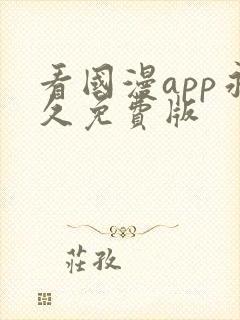 看國漫app永
久免費版
莊孜